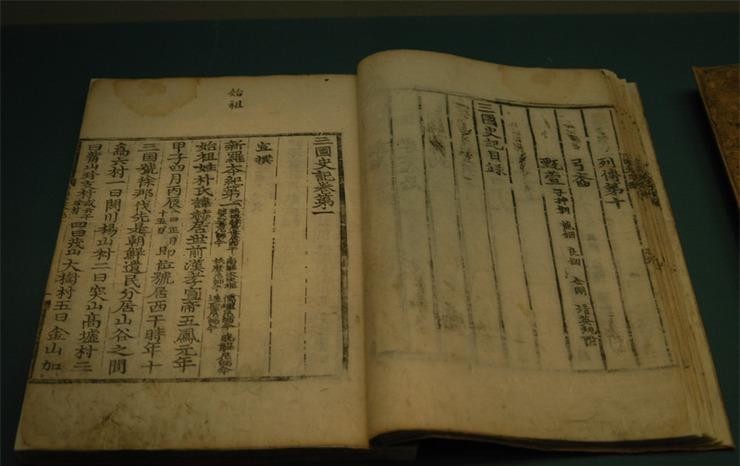 列傳第十
弓裔
甄萱 子神劒 龍劒 良劒 金剛
三國史記目錄
始祖
三國史記卷第一
宣撰
新羅本紀第一
始祖姓朴氏諱赫居世前漢孝宣帝五鳳元年
甲子四月丙辰 一曰正月十五日 即位號居西干時年十
三國號徐那伐先是朝鮮遺民分居山谷之間
爲六村一曰閼川楊山村二曰突山高墟村三
曰觜山珍支村 四曰茂山大樹村五曰金山加